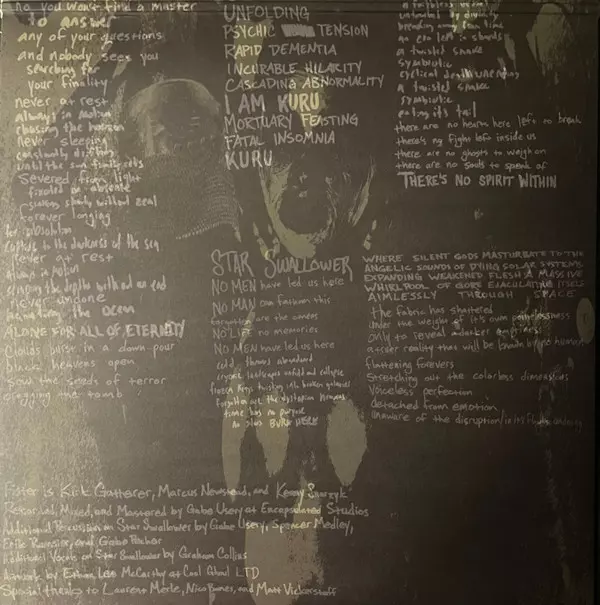 no you won't find a master
to answer
any of your questions
and nobody sees you
searching for
your finality
never at rest
always in motion
chasing the horizon
never sleeping
constantly drifting
until the sun finally sets
severed from light
fixated on absence
forever longing
for absolution
to the darkness of the sea
never at rest
always in motion
the depths without an end
never undone
the ocean
ALONE FOR ALL OF ETERNITY
Clouds burst in a down pour
black heavens open
sow the seeds of terror
clogging the tomb
UNFOLDING
PSYCHIC TENSION
RAPID DEMENTIA
INCURABLE HILARITY
CASCADING ABNORMALITY
I AM KURU
MORTUARY FEASTING
FATAL INSOMNIA
KURU
untended by divinity
breaking away from time
an era left in shards
a twisted snake
symbiotic
cyclical death unending
a twisted snake
symbiotic
eating its tail
there are no hearts here left to break
there's no fight left inside us
there are no ghosts to weigh on
there are no souls to speak of
THERE'S NO SPIRIT WITHIN
STAR SWALLOWER
NO MEN have led us here
NO MAN can fathom this
forgotten are the
NO LIFE no memories
NO MEN have led us here
cold
cryogenic landscapes unfold and collapse
frozen keys twisting into broken galaxies
forgotten are the dystopian
time has no purpose
no plans BURN HERE
WHERE SILENT GODS MASTURBATE TO THE
ANGELIC SOUNDS OF DYING SOLAR SYSTEMS
EXPANDING WEAKENED FLESH A MASSIVE
WHIRLPOOL OF GORE EJACULATING ITSELF
AIMLESSLY THROUGH SPACE
the fabric has shattered
under the weight of it's own pointlessness
only to reveal a darker emptiness
a truer reality that will be known by no human
flattening forevers
stretching out the colorless dimensions
Voiceless perfection
detached from emotion
unaware of the disruption
Fister is Kirk Gatterer, Marcus Newstead, and Kenny Snarzyk
Recorded, Mixed, and Mastered by Gabe Usery at Encapsulated Studios
Additional Percussion on Star Swallower by Gabe Usery, Spencer Medley,
Erik Ramsier, and Gabe
Additional Vocals on Star Swallower by Graham Collins
Artwork by Ethan Lee McCarthy at Cool Ghoul LTD
Special thanks to Laurent Merle, Nico Bones, and Matt Vickerstaff